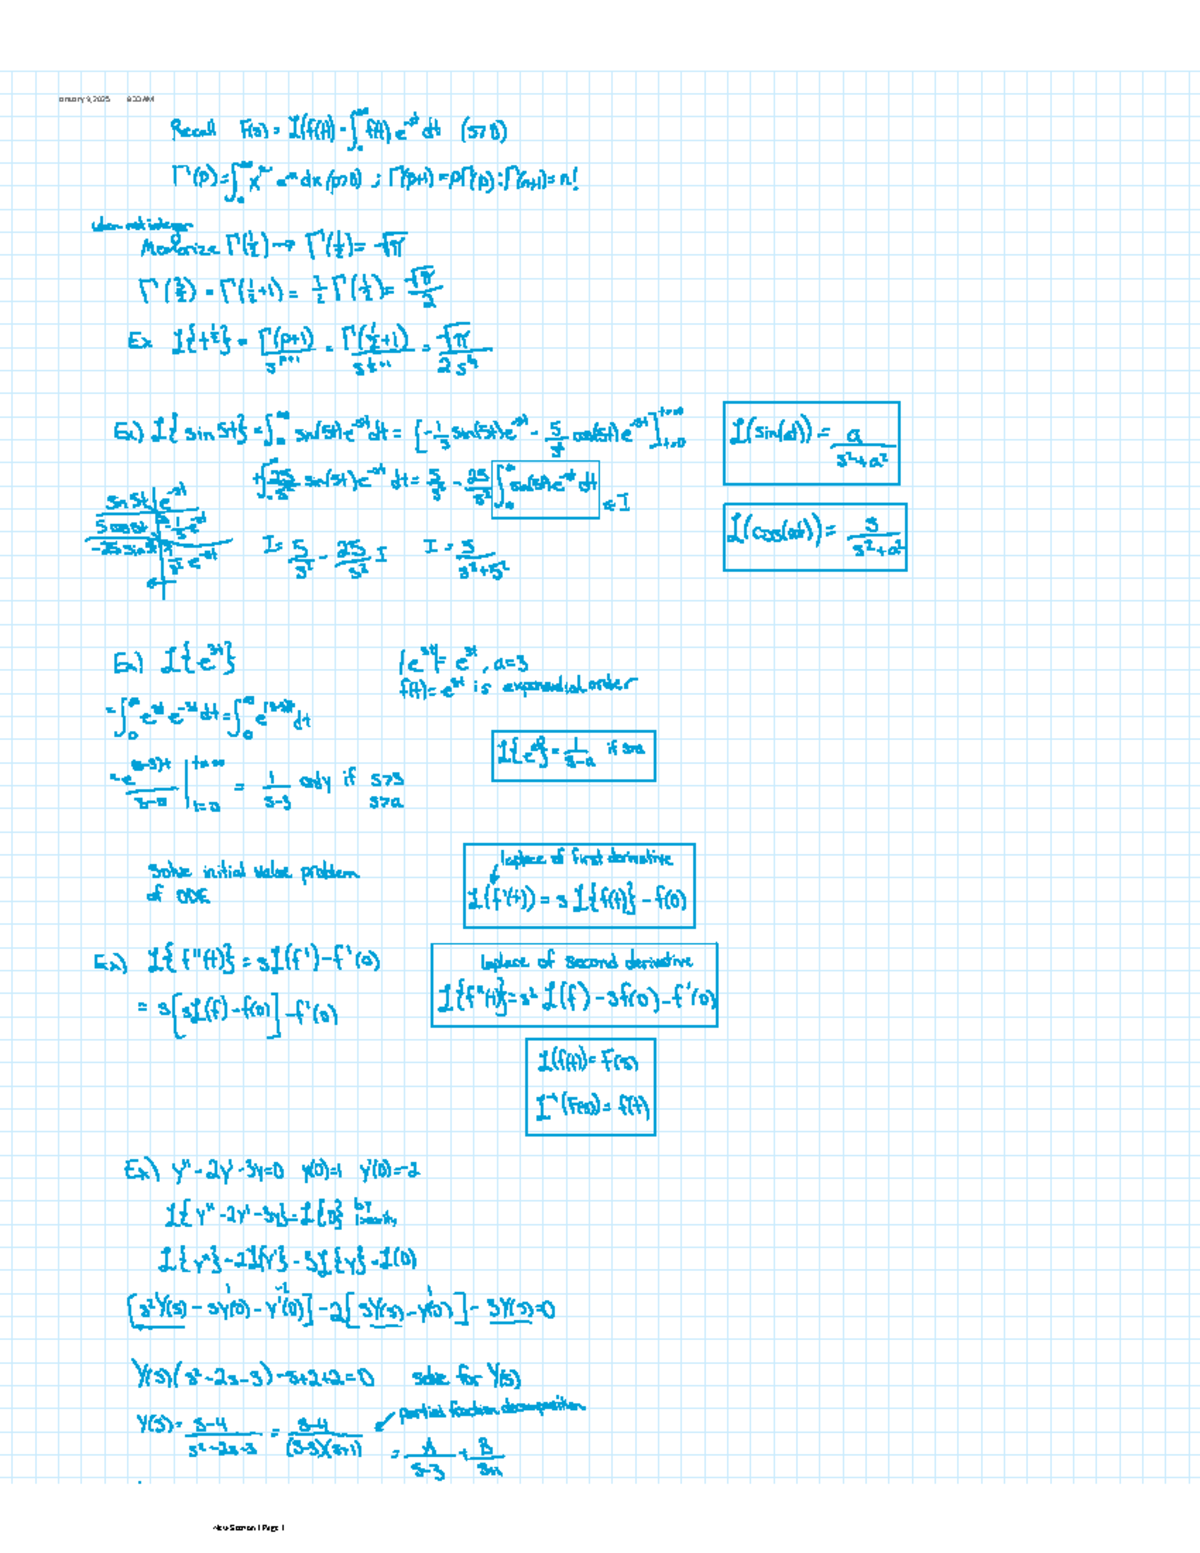 January 9, 2025 8:30 AM
Recall F(s) = ℒ(f(t)) = ∫₀^∞ f(t) e^{-st} dt (s>0)
Γ(p) = ∫₀^∞ x^{p-1} e^{-x} dx (p>0) ; Γ(p+1) = pΓ(p) : Γ(n+1) = n!
when not integer
Memorize Γ(1/2) → Γ(1/2) = √π
Γ(3/2) = Γ(1/2+1) = 1/2 Γ(1/2) = √π/2
Ex ℒ{t^{1/2}} = Γ(p+1)/s^{p+1} = Γ(1/2+1)/s^{1/2+1} = √π/2s^{3/2}
Ex) ℒ{sin5t} = ∫₀^∞ sin(5t) e^{-st} dt = [-1/s sin(5t) e^{-st} - 5/s² cos(5t) e^{-st}]_{t=0}^{t=∞}
ℒ(sin(at)) = a/(s²+a²)
+∫₀^∞ -25/s² sin(5t) e^{-st} dt = 5/s² - 25/s² ∫₀^∞ sin(5t) e^{-st} dt ← I
sin5t | e^{-st}
5cos5t | -1/s e^{-st}
-25sin5t | 1/s² e^{-st}
ℒ(cos(at)) = s/(s²+a²)
I = 5/s² - 25/s² I I = 5/(s²+5²)
Ex) ℒ{e^{3t}}
|e^{3t}| = e^{3t}, a=3
f(t) = e^{3t} is exponential order
= ∫₀^∞ e^{3t} e^{-st} dt = ∫₀^∞ e^{(3-s)t} dt
ℒ{e^{at}} = 1/(s-a) if s>a
= 1/(s-3) only if s>3
s>a
Solve initial value problem
of ODE
laplace of first derivative
ℒ(f'(t)) = s ℒ{f(t)} - f(0)
Ex) ℒ{f''(t)} = sℒ(f') - f'(0)
= s[sℒ(f) - f(0)] - f'(0)
laplace of second derivative
ℒ{f''(t)} = s² ℒ(f) - sf(0) - f'(0)
ℒ(f(t)) = F(s)
ℒ⁻¹(F(s)) = f(t)
Ex) y'' - 2y' - 3y = 0 y(0)=1 y'(0)=-2
ℒ{y'' - 2y' - 3y} = ℒ{0} by linearity
ℒ{y''} - 2ℒ{y'} - 3ℒ{y} = ℒ(0)
1 -2 1
[s²Y(s) - sy(0) - y'(0)] - 2[sY(s) - y(0)] - 3Y(s) = 0
Y(s)(s² - 2s - 3) - s + 2 + 2 = 0 solve for Y(s)
partial fraction decomposition
Y(s) = (s-4)/(s²-2s-3) = (s-4)/((s-3)(s+1)) = A/(s-3) + B/(s+1)
New Section 1 Page 1